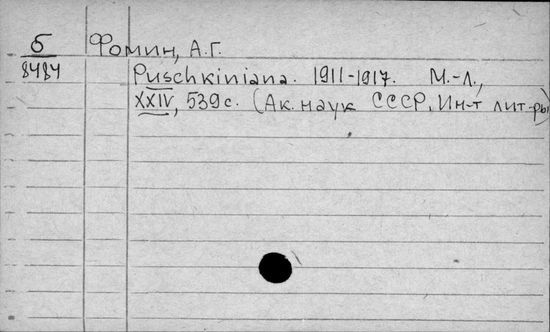 Б Фомин, А.Г.
8484 Puschkiniana. 1911-1917. М.-Л.,
XXIV, 539 с. (Ак. наук СССР, Ин-т лит-ры)